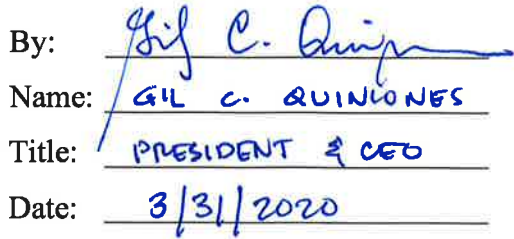 By: Gil C. Quin
Name: GIL C. QUINIONES
Title: PRESIDENT & CEO
Date: 3/31/2020